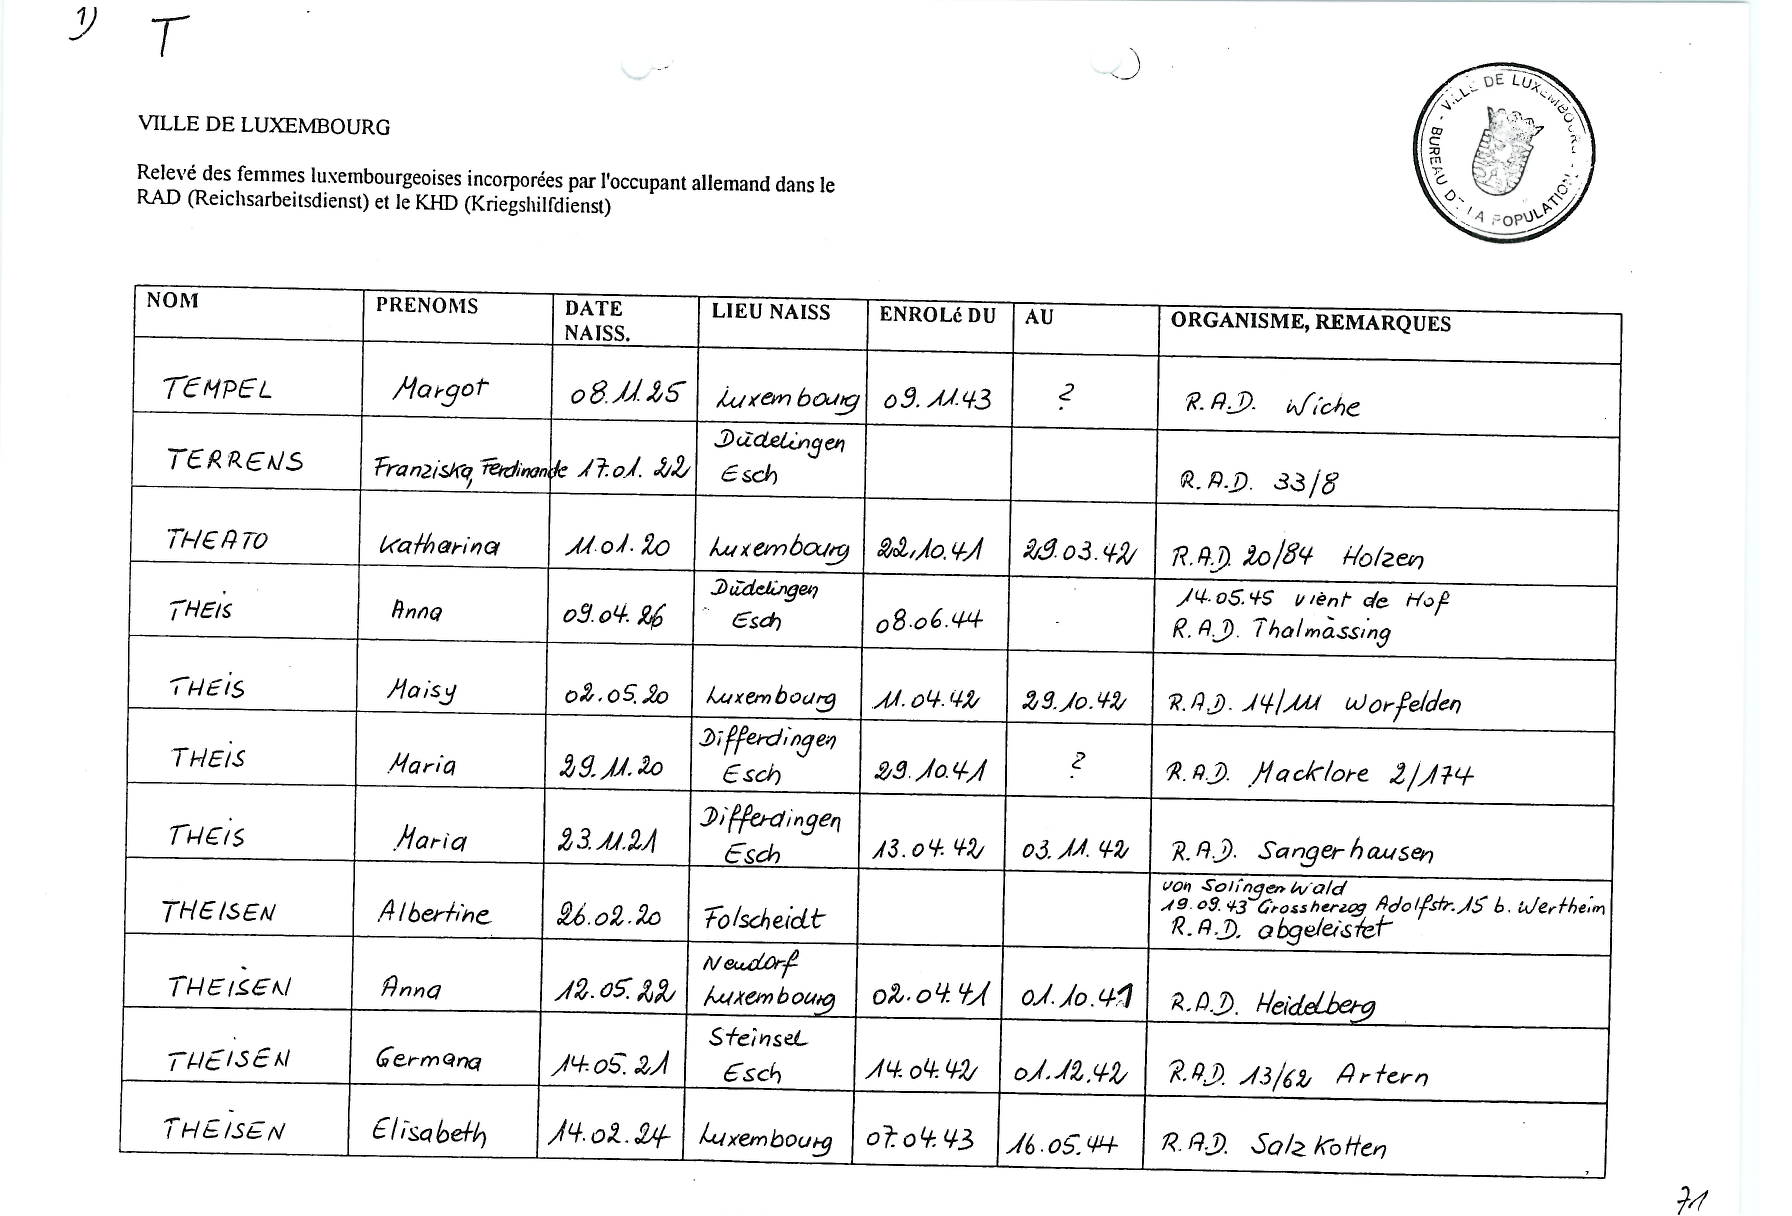 1) T
VILLE DE LUXEMBOURG - BUREAU DE LA POPULATION -
VILLE DE LUXEMBOURG
Relevé des femmes luxembourgeoises incorporées par l'occupant allemand dans le
RAD (Reichsarbeitsdienst) et le KHD (Kriegshilfdienst)
NOM PRENOMS DATE NAISS. LIEU NAISS ENROLé DU AU ORGANISME, REMARQUES
TEMPEL Margot 08.11.25 Luxembourg 09.11.43 ? R.A.D. Wiche
TERRENS Franziska, Ferdinande 17.01.22 Düdelingen Esch R.A.D. 33/8
THEATO Katharina 11.01.20 Luxembourg 22.10.41 29.03.42 R.A.D. 20/84 Holzen
THEIS Anna 09.04.26 Düdelingen Esch 08.06.44 14.05.45 vient de Hof R.A.D. Thalmässing
THEIS Maisy 02.05.20 Luxembourg 11.04.42 29.10.42 R.A.D. 14/111 Worfelden
THEIS Maria 29.11.20 Differdingen Esch 29.10.41 ? R.A.D. Macklore 2/174
THEIS Maria 23.11.21 Differdingen Esch 13.04.42 03.11.42 R.A.D. Sangerhausen
THEISEN Albertine 26.02.20 Folscheidt von Solingen Wald 19.09.43 Grossherzog Adolfstr. 15 b. Wertheim R.A.D. abgeleistet
THEISEN Anna 12.05.22 Neudorf Luxembourg 02.04.41 01.10.41 R.A.D. Heidelberg
THEISEN Germana 14.05.21 Steinsel Esch 14.04.42 01.12.42 R.A.D. 13/62 Artern
THEISEN Elisabeth 14.02.24 Luxembourg 07.04.43 16.05.44 R.A.D. Salzkotten
71